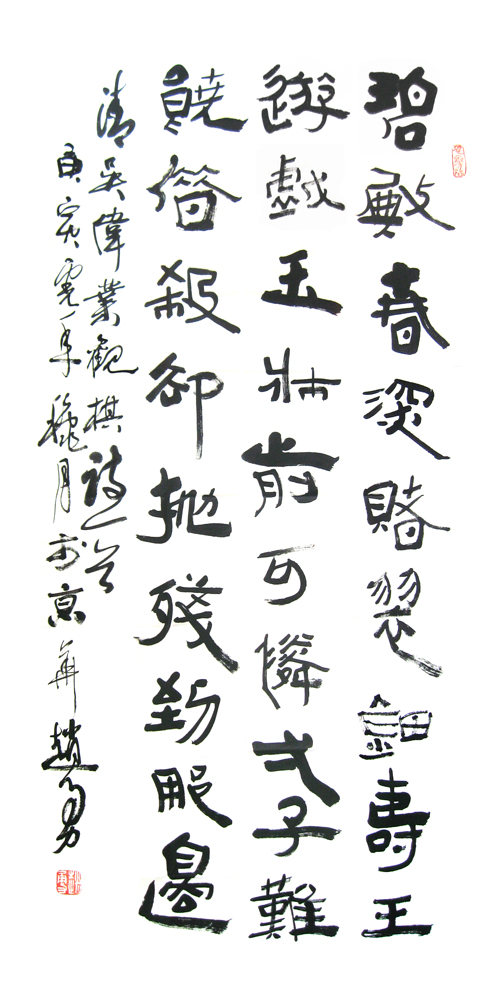 碧殿春深賭翠鈿壽王
遊戲玉牀前可憐弌子難
饒借殺卻拋殘到那邊
清吳偉業觀棋詩一首
庚寅虎年穐月於京華趙勇